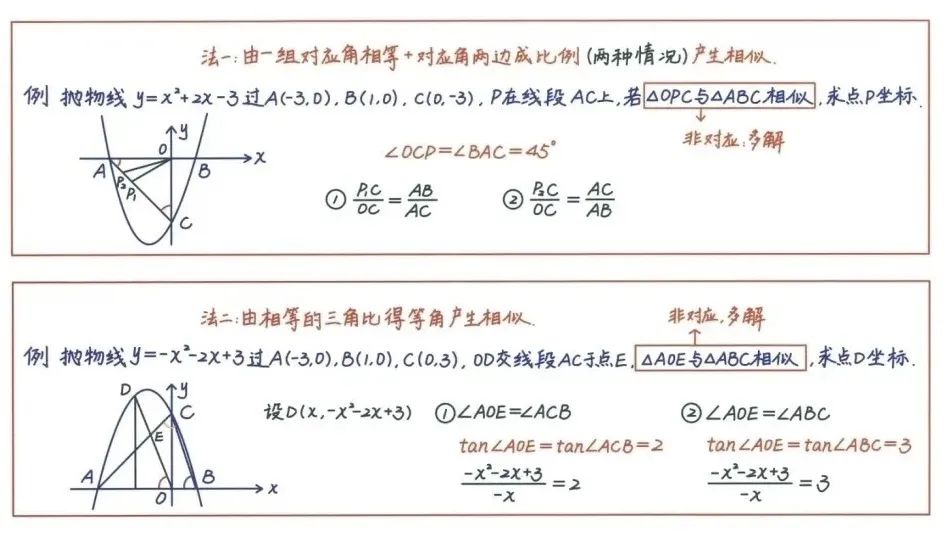 法一:由一组对应角相等+对应角两边成比例(两种情况)产生相似.
例 抛物线 y=x²+2x-3过A(-3,0),B(1,0),C(0,-3),P在线段AC上,若△OPC与△ABC相似,求点P坐标.
非对应,多解
∠OCP=∠BAC=45°
① P₁C/OC=AB/AC ② P₂C/OC=AC/AB
y
O
x
A
B
P₂
P₁
C
法二:由相等的三角比得等角产生相似.
非对应,多解
例 抛物线y=-x²-2x+3过A(-3,0),B(1,0),C(0,3),OD交线段AC于点E,△AOE与△ABC相似,求点D坐标.
设D(x,-x²-2x+3) ①∠AOE=∠ACB ②∠AOE=∠ABC
tan∠AOE=tan∠ACB=2 tan∠AOE=tan∠ABC=3
(-x²-2x+3)/(-x)=2 (-x²-2x+3)/(-x)=3
D
y
C
E
A
O
B
x